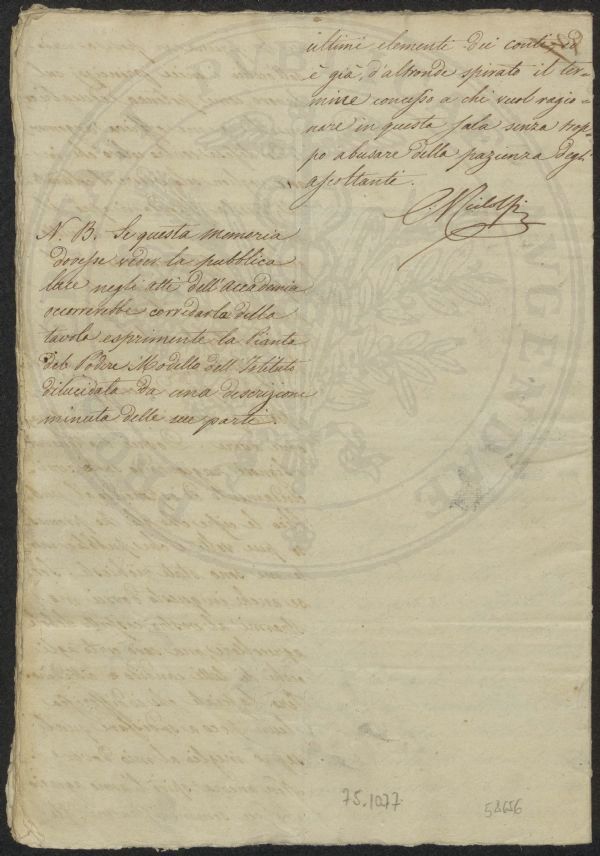 ultimi elementi dei conti, ed
è già d'altronde spirato il ter-
mine concesso a chi vuol ragio-
nare in questa sala senza trop-
po abusare della pazienza degl'
ascoltanti.
N. B. Se questa memoria
dovesse veder la pubblica
luce negli atti dell'Accademia
occorrerebbe corredarla della
tavola esprimente la Pianta
del Podere Modello dell'Istituto
dilucidata da una descrizione
minuta delle sue parti.
75.1077
58656